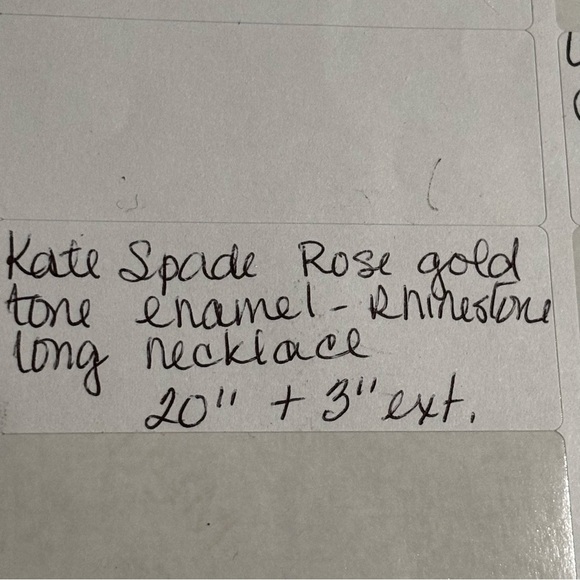 Kate Spade Rose gold
tone enamel - Rhinestone
long necklace
20" + 3" ext.